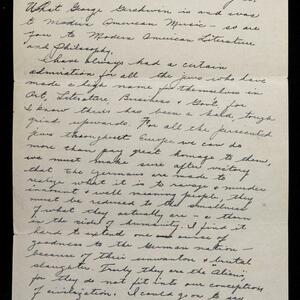 What George Gershwin is and was
to Modern American Music - so are
you to Modern American Literature
and Philosophy.
I have always had a certain
admiration for all the Jews who have
made a high name for themselves in
Art, Literature, Business & Gov't. for
I know theirs has been a hard, tough
grind upwards. For all the persecuted
Jews throughout Europe we can do
more than pay great homage to them,
we must make sure after victory
that the Germans are made to
realize what it is to ravage & murder
innocent & well meaning people, they
must be reduced to the smallest
of what they actually are - a thorn
in the side of humanity. I find it
hard to extend one ounce of
goodness to the German nation -
because of their unwanton & brutal
slaughter. Truly they are the Aliens,
for They do not fit into our conception
of civilization. I could go on to say